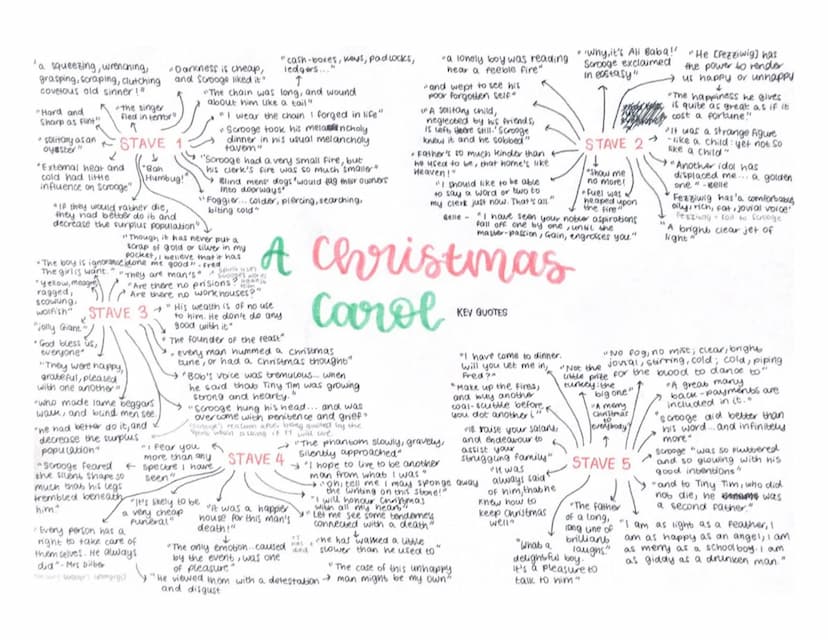 "a squeezing, wrenching,
grasping, scraping, clutching
covetous old sinner!"
"Darkness is cheap,
and Scrooge liked it"
"cash-boxes, keys, padlocks,
ledgers..."
"The chain was long, and wound
about him like a tail"
"Hard and
Sharp as flint"
"the singer
fled in terror"
"I wear the chain I forged in life"
"solitary as an
oyster"
STAVE 1
Scrooge took his melancholy
dinner in his usual melancholy
tavern"
"External heat and
cold had little
influence on Scrooge"
"Bah
Humbug!"
"Scrooge had a very small fire, but
his clerk's fire was so much smaller"
"Blind mens' dogs" would tug their owners
into doorways"
"Foggier... colder, piercing, searching,
biting cold"
"If they would rather die,
they had better do it and
decrease the surplus population"
"Though it has never put a
scrap of gold or silver in my
pocket, I believe that it has
done me good" - Fred
"a lonely boy was reading
near a feeble fire"
"and wept to see his
poor forgotten self"
"A solitary child,
neglected by his friends,
is left there still." Scrooge
knew it and he sobbed"
"Father's so much kinder than
he used to be, that home's like
Heaven!"
"I should like to be able
to say a word or two to
my clerk just now. That's all"
Belle - "I have seen your nobler aspirations
fall off one by one, until the
master-passion, Gain, engrosses you"
STAVE 2
"Why, it's Ali Baba!"
Scrooge exclaimed
in ecstasy"
"He [Fezziwig] has
the power to render
us happy or unhappy
"The happiness he gives
is quite as great as if it
cost a fortune."
"It was a strange figure
-like a child: yet not so
like a child"
"Another idol has
displaced me... a golden
one" - Belle
"Show me
no more!
"Fuel was
heaped upon
the fire"
Fezziwig has "a comfortable,
oily, rich, fat, jovial voice"
"A bright clear jet of
light"
A Christmas
Carol
KEY QUOTES
"The boy is ignorance
The girl is want."
"They are man's"
"Yellow, meagre,
ragged,
scowling,
wolfish"
"Are there no prisons?
Are there no workhouses?"
STAVE 3
"His wealth is of no use
to him. He don't do any
good with it"
"Jolly Giant"
"The founder of the feast"
"God bless us,
everyone"
"every man hummed a Christmas
tune, or had a Christmas thought"
"They were happy,
grateful, pleased
with one another"
"Bob's voice was tremulous... when
he said that Tiny Tim was growing
strong and hearty."
"who made lame beggars
walk, and blind men see
"Scrooge hung his head... and was
overcome with penitence and grief"
"he had better do it, and
decrease the surplus
population"
STAVE 4
"I fear you
more than any
spectre I have
seen"
"The phantom slowly, gravely,
silently approached"
"Scrooge feared
the silent shape so
much that his legs
trembled beneath
him."
"I hope to live to be another
man from what I was"
"oh, tell me I may sponge away
the writing on this stone!"
"I will honour Christmas
with all my heart"
"Let me see some tenderness
connected with a death"
"It's likely to be
a very cheap
funeral"
"It was a happier
house for this man's
death!"
"he has walked a little
slower than he used to"
"Every person has a
right to take care of
themselves. He always
did" - Mrs Dilber
"The only emotion... caused
by the event, was one
of pleasure"
"The case of this unhappy
man might be my own"
"He viewed them with a detestation
and disgust
STAVE 5
"I have come to dinner.
Will you let me in,
Fred?"
"Not the
little prize
turkey: the
big one"
"No fog, no mist; clear, bright
jovial, stirring, cold; cold, piping
for the blood to dance to"
"Make up the fires,
and buy another
coal-scuttle before
you dot another i"
"A merry
Christmas
to everybody!"
"A great many
back-payments are
included in it."
"I'll raise your salary,
and endeavour to
assist your
struggling family"
"Scrooge did better than
his word... and infinitely
more"
Scrooge "was so fluttered
and so glowing with his
good intentions"
"It was
always said
of him, that he
knew how to
keep Christmas
well"
"and to Tiny Tim, who did
not die, he was
a second father"
"The father
of a long,
long line of
brilliant
laughs"
"What a
delightful boy.
It's a pleasure to
talk to him"
"I am as light as a feather, I
am as happy as an angel, I am
as merry as a schoolboy. I am
as giddy as a drunken man."